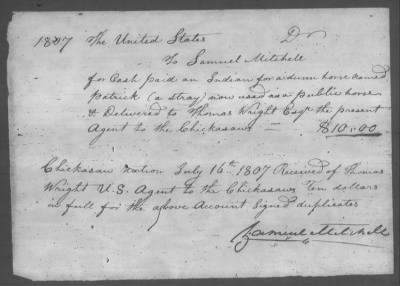 1807 The United States Dr
To Samuel Mitchell
for Cash paid an Indian for a dunn horse named
Patrick (a stray) now used as a public horse
& Delivered to Thomas Wright Esqr the present
Agent to the Chickasaws — $10.00
Chickasaw Nation July 16th 1807 Received of Thomas
Wright U.S. Agent to the Chickasaws Ten dollars
in full for the above Account Signed duplicates
Samuel Mitchell